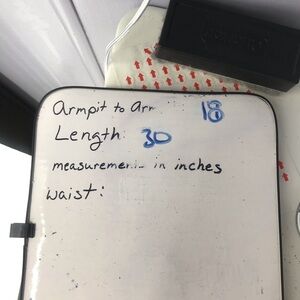 Armpit to Arm 18
Length: 30
measurements in inches
waist: